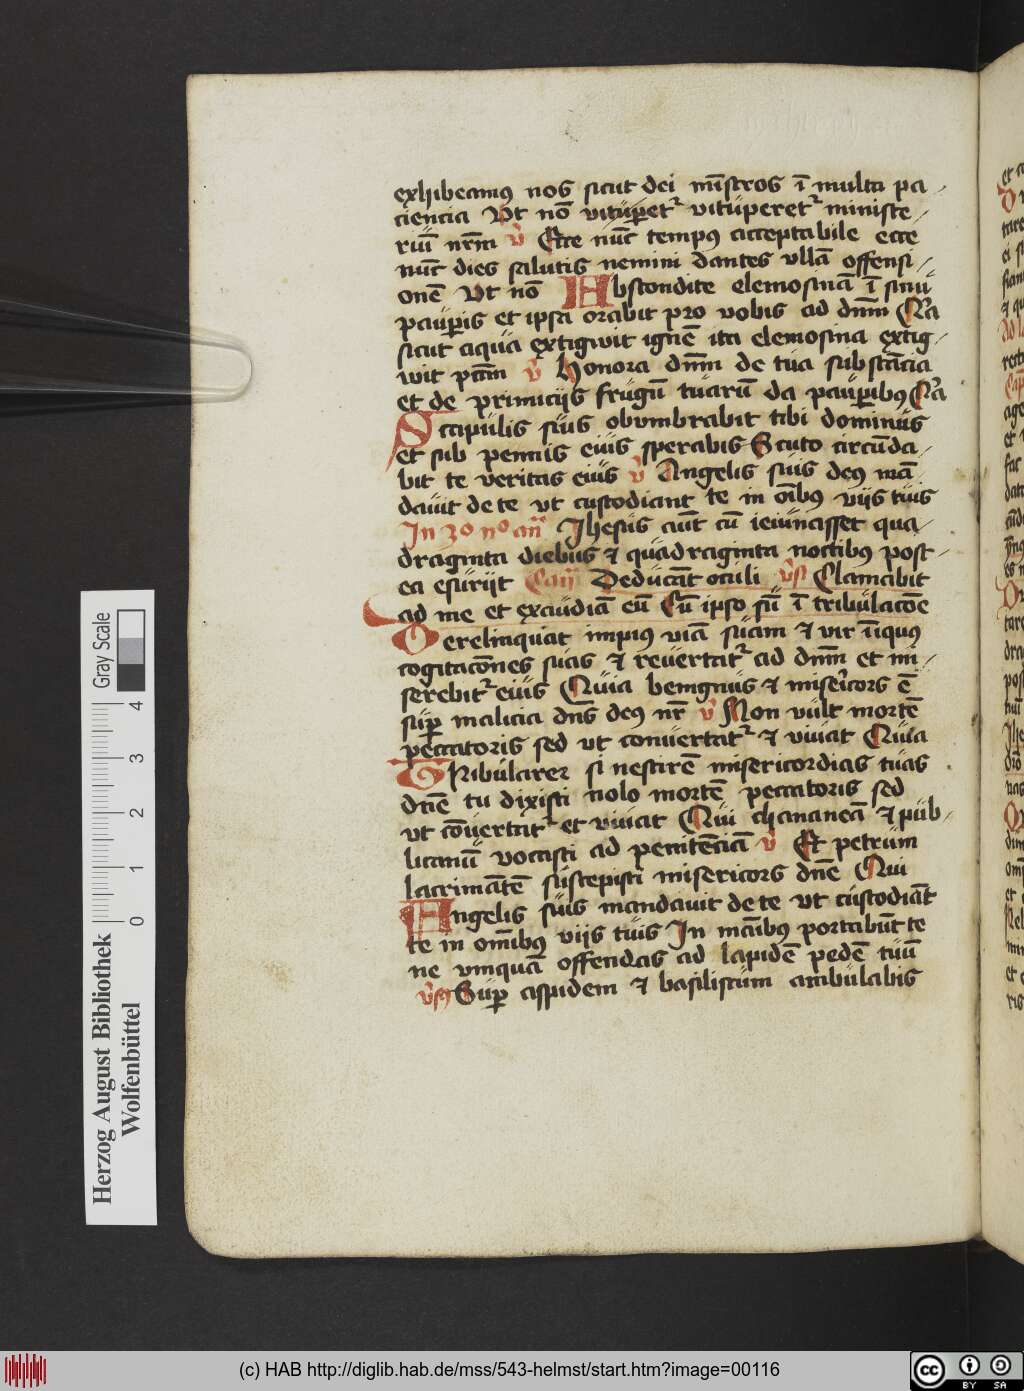 exhibeamꝰ nos sicut dei mīstros ī multa pa-
ciencia Vt nō vitup̱et᷑ vituperet᷑ ministe-
riū nr̄m v̄ Ecce nūc tempꝰ acceptabile ecce
nūc dies salutis nemini dantes vllā offensi-
onē Vt nō Abscondite elemosinā ī sinu
paup̱is et ipsa orabit pro vobis ad dn̄m Qa
sicut aqua extigwit ignē ita elemosina extig-
wit pc̄cm v̄ Honora dn̄m de tua substācia
et de primiciis frugū tuarū da paup̱ibꝰ Qa
Scapulis suis obvmbrabit tibi dominus
et sub pennis eius sperabis Scuto circūda-
bit te veritas eius v̄ Angelis suis deꝰ mā-
dauit de te vt custodiant te in oībꝰ viis tuis
In 3o no an̄ Ihesus aūt cū ieiunasset qua-
draginta diebus ⁊ quadraginta noctibꝰ post-
ea esuriit Deducāt oculi v̄s Clamabit
ad me et exaudiā eū Cū ipso sū ī tribulacōe
Derelinquat impiꝰ viā suam ⁊ vir īiquꝰ
cogitacōnes suas ⁊ reuertat᷑ ad dn̄m et mi-
serebit᷑ eius Quia benignus ⁊ misericors ē
sup̱ malicia dn̄s deꝰ nr̄ v̄ Non vult mortē
peccatoris sed vt conuertat᷑ ⁊ viuat Quia
Tribularer si nescirē misericordias tuas
dn̄e tu dixisti nolo mortē peccatoris sed
vt cōuertat᷑ et viuat Qui chananeā ⁊ pub-
licanū vocasti ad penitēciā v̄ Et petrum
lacrimātē suscepisti misericors dn̄e Qui
Angelis suis mandauit de te vt custodiāt
te in omībꝰ viis tuis In māibꝰ portabūt te
ne vnquā offendas ad lapidē pedē tuū
v̄s Sup̱ aspidem ⁊ basiliscum ambulabis
Gray Scale
0 1 2 3 4
Herzog August Bibliothek
Wolfenbüttel
(c) HAB http://diglib.hab.de/mss/543-helmst/start.htm?image=00116
cc BY SA